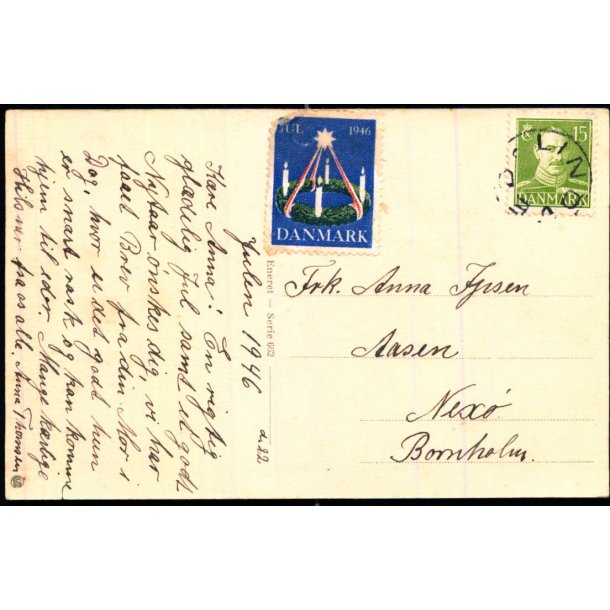 Julen 1946
d. 22
Kære Anna! En rigtig
glædelig Jul samt et godt
Nytaar ønskes dig, vi har
faaet Brev fra din Mor i
Dag, hvor er det godt hun
er snart rask og kan komme
hjem til eder. Mange kærlige
Hilsner fra os alle. Anna Thomsen
Eneret — Serie 602
JUL 1946
DANMARK
15
DANMARK
Frk. Anna
Aasen
Nexø
Bornholm.